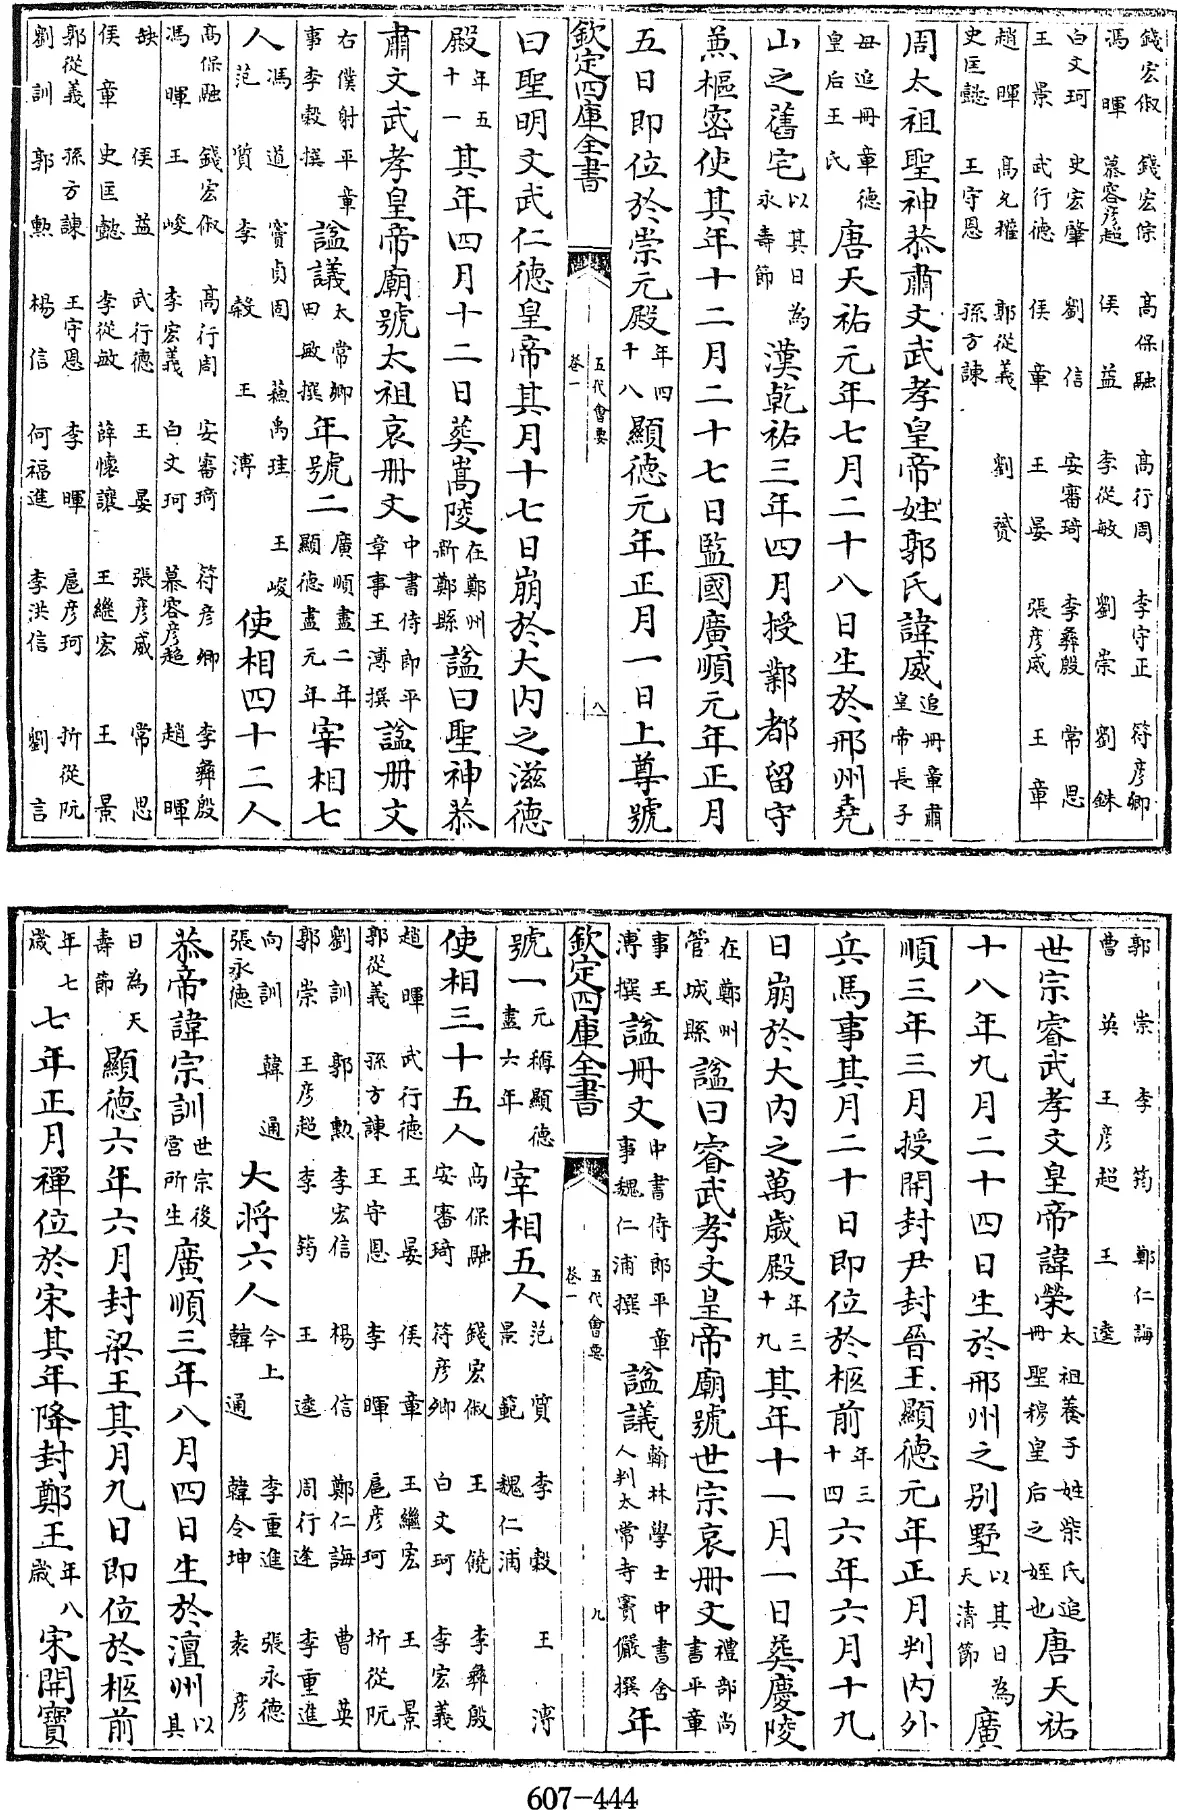 錢宏俶 錢宏倧 高保融 高行周 李守正 符彥卿
馮暉 慕容彥超 侯益 李從敏 劉崇 劉銖
白文珂 史宏肇 劉信 安審琦 李彝殷 常思
王景 武行德 侯章 王晏 張彥威 王章
趙暉 高允權 郭從義 劉贇
史匡懿 王守恩 孫方諫
周太祖聖神恭肅文武孝皇帝姓郭氏諱威追冊章肅皇帝長子
母追冊章德皇后王氏唐天祐元年七月二十八日生於邢州堯
山之舊宅以其日為永壽節漢乾祐三年四月授鄴都留守
兼樞密使其年十二月二十七日監國廣順元年正月
五日即位於崇元殿年四十八顯德元年正月一日上尊號
欽定四庫全書 五代會要 卷一 八
曰聖明文武仁德皇帝其月十七日崩於大內之滋德
殿年五十一其年四月十二日葬嵩陵在鄭州新鄭縣謚曰聖神恭
肅文武孝皇帝廟號太祖哀冊文中書侍郎平章事王溥撰謚冊文
右僕射平章事李穀撰謚議太常卿田敏撰年號二廣順盡二年顯德盡元年宰相七
人馮道 竇貞固 蘇禹珪 王峻 范質 李穀 王溥使相四十二人
高保融 錢宏俶 高行周 安審琦 符彥卿 李彝殷
馮暉 王峻 李宏義 白文珂 慕容彥超 趙暉
缺 侯益 武行德 王晏 張彥威 常思
侯章 史匡懿 李從敏 薛懷讓 王繼宏 王景
郭從義 孫方諫 王守恩 李暉 扈彥珂 折從阮
劉訓 郭勲 楊信 何福進 李洪信 劉言
郭崇 李筠 鄭仁誨
曹英 王彥超 王逵
世宗睿武孝文皇帝諱榮太祖養子姓柴氏追冊聖穆皇后之姪也唐天祐
十八年九月二十四日生於邢州之別墅以其日為天清節廣
順三年三月授開封尹封晉王顯德元年正月判內外
兵馬事其月二十日即位於柩前年三十四六年六月十九
日崩於大內之萬歲殿年三十九其年十一月一日葬慶陵
在鄭州管城縣謚曰睿武孝文皇帝廟號世宗哀冊文禮部尚書平章
事王溥撰謚冊文中書侍郎平章事魏仁浦撰謚議翰林學士中書舍人判太常寺竇儼撰年
欽定四庫全書 五代會要 卷一 九
號一元稱顯德盡六年宰相五人范質 李穀 王溥 景範 魏仁浦
使相三十五人高保融 錢宏俶 王饒 李彝殷 安審琦 符彥卿 白文珂 李宏義
趙暉 武行德 王晏 侯章 王繼宏 王景
郭從義 孫方諫 王守恩 李暉 扈彥珂 折從阮
劉訓 郭勲 李宏信 楊信 鄭仁誨 曹英
郭崇 王彥超 李筠 王逵 周行逢 李重進
向訓 韓通 張永德大將六人今上 李重進 張永德 韓通 韓令坤 袁彥
恭帝諱宗訓世宗後宮所生廣順三年八月四日生於澶州以其
日為天壽節顯德六年六月封梁王其月九日即位於柩前
年七歲七年正月禪位於宋其年降封鄭王年八歲宋開寶
607-444